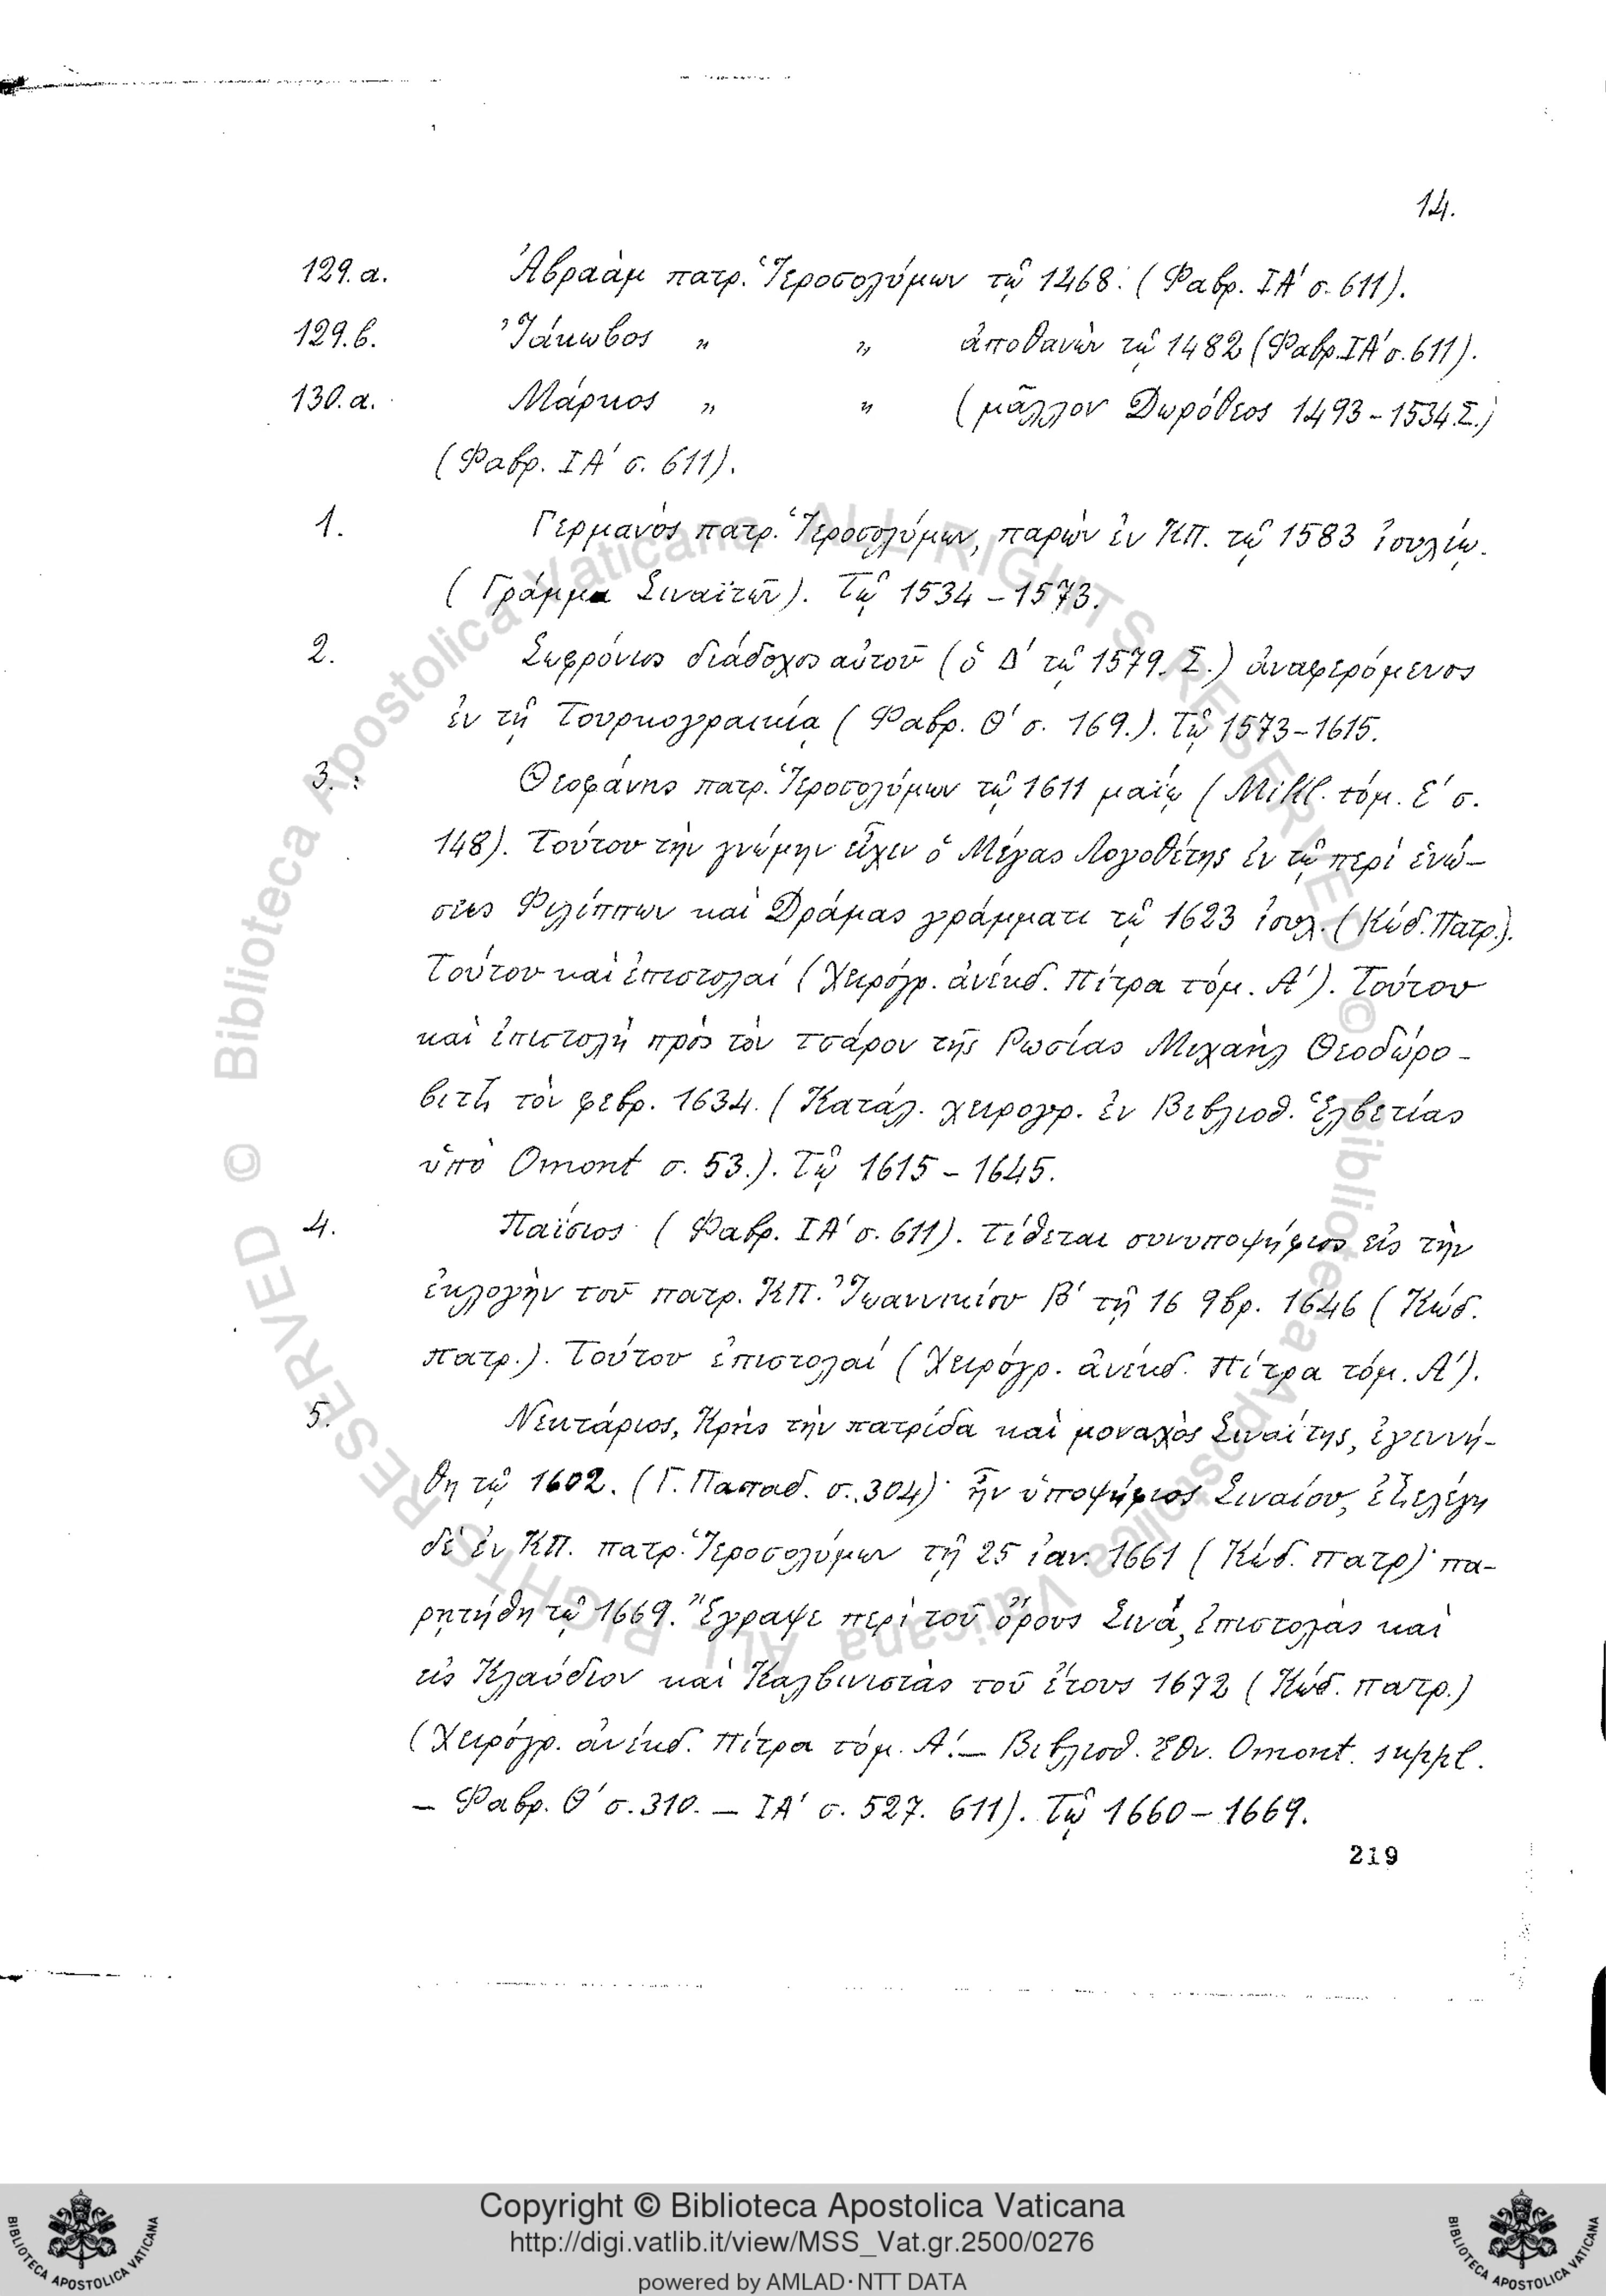 14.
129.α. Ἀβραὰμ πατρ. Ἱεροσολύμων τῷ 1468. (Φαβρ. ΙΑ΄ σ. 611).
129.β. Ἰάκωβος " " ἀποθανὼν τῷ 1482 (Φαβρ. ΙΑ΄ σ. 611).
130.α. Μάρκος " " (μᾶλλον Δωρόθεος 1493-1534.Σ.)
(Φαβρ. ΙΑ΄ σ. 611).
1. Γερμανὸς πατρ. Ἱεροσολύμων, παρὼν ἐν ΚΠ. τῷ 1583 ἰουλίῳ.
(Γράμμα Σιναϊτῶν). Τῷ 1534-1573.
2. Σωφρόνιος διάδοχος αὐτοῦ (ὁ Δ΄ τῷ 1579. Σ.) ἀναφερόμενος
ἐν τῇ Τουρκογραικίᾳ (Φαβρ. Θ΄ σ. 169.). Τῷ 1573-1615.
3. Θεοφάνης πατρ. Ἱεροσολύμων τῷ 1611 μαίῳ (Mikl. τόμ. Ε΄ σ.
148). Τούτου τὴν γνώμην εἶχεν ὁ Μέγας Λογοθέτης ἐν τῷ περὶ ἑνώ-
σεως Φιλίππων καὶ Δράμας γράμματι τῷ 1623 ἰουλ. (Κώδ. Πατρ.).
Τούτου καὶ ἐπιστολαί (Χειρόγρ. ἀνέκδ. Πίτρα τόμ. Α΄). Τούτου
καὶ ἐπιστολὴ πρὸς τὸν τσάρον τῆς Ρωσίας Μιχαὴλ Θεοδώρο-
βιτζ τὸν φεβρ. 1634. (Κατάλ. χειρογρ. ἐν Βιβλιοθ. Ἑλβετίας
ὑπὸ Omont σ. 53.). Τῷ 1615-1645.
4. Παΐσιος (Φαβρ. ΙΑ΄ σ. 611). Τίθεται συνυποψήφιος εἰς τὴν
ἐκλογὴν τοῦ πατρ. ΚΠ. Ἰωαννικίου Β΄ τῇ 16 9βρ. 1646 (Κώδ.
πατρ.). Τούτου ἐπιστολαί (Χειρόγρ. ἀνέκδ. Πίτρα τόμ. Α΄).
5. Νεκτάριος, Κρὴς τὴν πατρίδα καὶ μοναχὸς Σιναΐτης, ἐγεννή-
θη τῷ 1602. (Γ. Παπαδ. σ. 304)· ἦν ὑποψήφιος Σιναίου, ἐξελέγη
δὲ ἐν ΚΠ. πατρ. Ἱεροσολύμων τῇ 25 ἰαν. 1661 (Κώδ. πατρ)· πα-
ρῃτήθη τῷ 1669. Ἔγραψε περὶ τοῦ ὄρους Σινᾶ, ἐπιστολὰς καὶ
εἰς Κλαύδιον καὶ Καλβινιστὰς τοῦ ἔτους 1672 (Κώδ. πατρ.)
(Χειρόγρ. ἀνέκδ. Πίτρα τόμ. Α΄.— Βιβλιοθ. Ἐθν. Omont. suppl.
— Φαβρ. Θ΄ σ. 310. — ΙΑ΄ σ. 527. 611). Τῷ 1660-1669.
219
© Biblioteca Apostolica Vaticana ALL RIGHTS RESERVED
© Biblioteca Apostolica Vaticana ALL RIGHTS RESERVED
Copyright © Biblioteca Apostolica Vaticana
http://digi.vatlib.it/view/MSS_Vat.gr.2500/0276
powered by AMLAD·NTT DATA
BIBLIOTECA APOSTOLICA VATICANA
BIBLIOTECA APOSTOLICA VATICANA